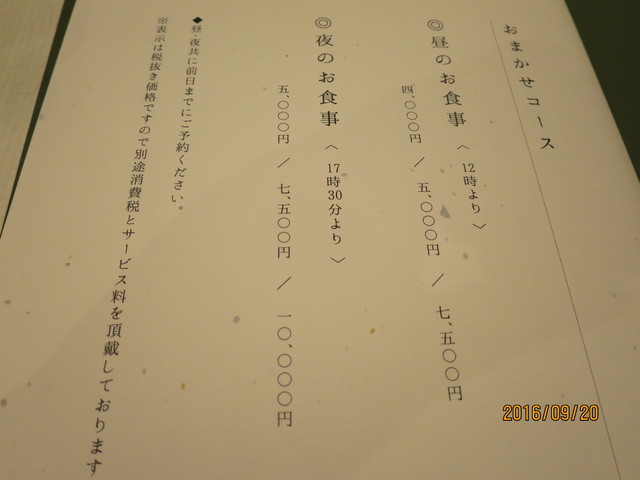 おまかせコース
◎昼のお食事〈12時より〉
四、〇〇〇円／五、〇〇〇円／七、五〇〇円
◎夜のお食事〈17時30分より〉
五、〇〇〇円／七、五〇〇円／一〇、〇〇〇円
◆昼・夜共に前日までにご予約ください。
※表示は税抜き価格ですので別途消費税とサービス料を頂戴しております
2016/09/20